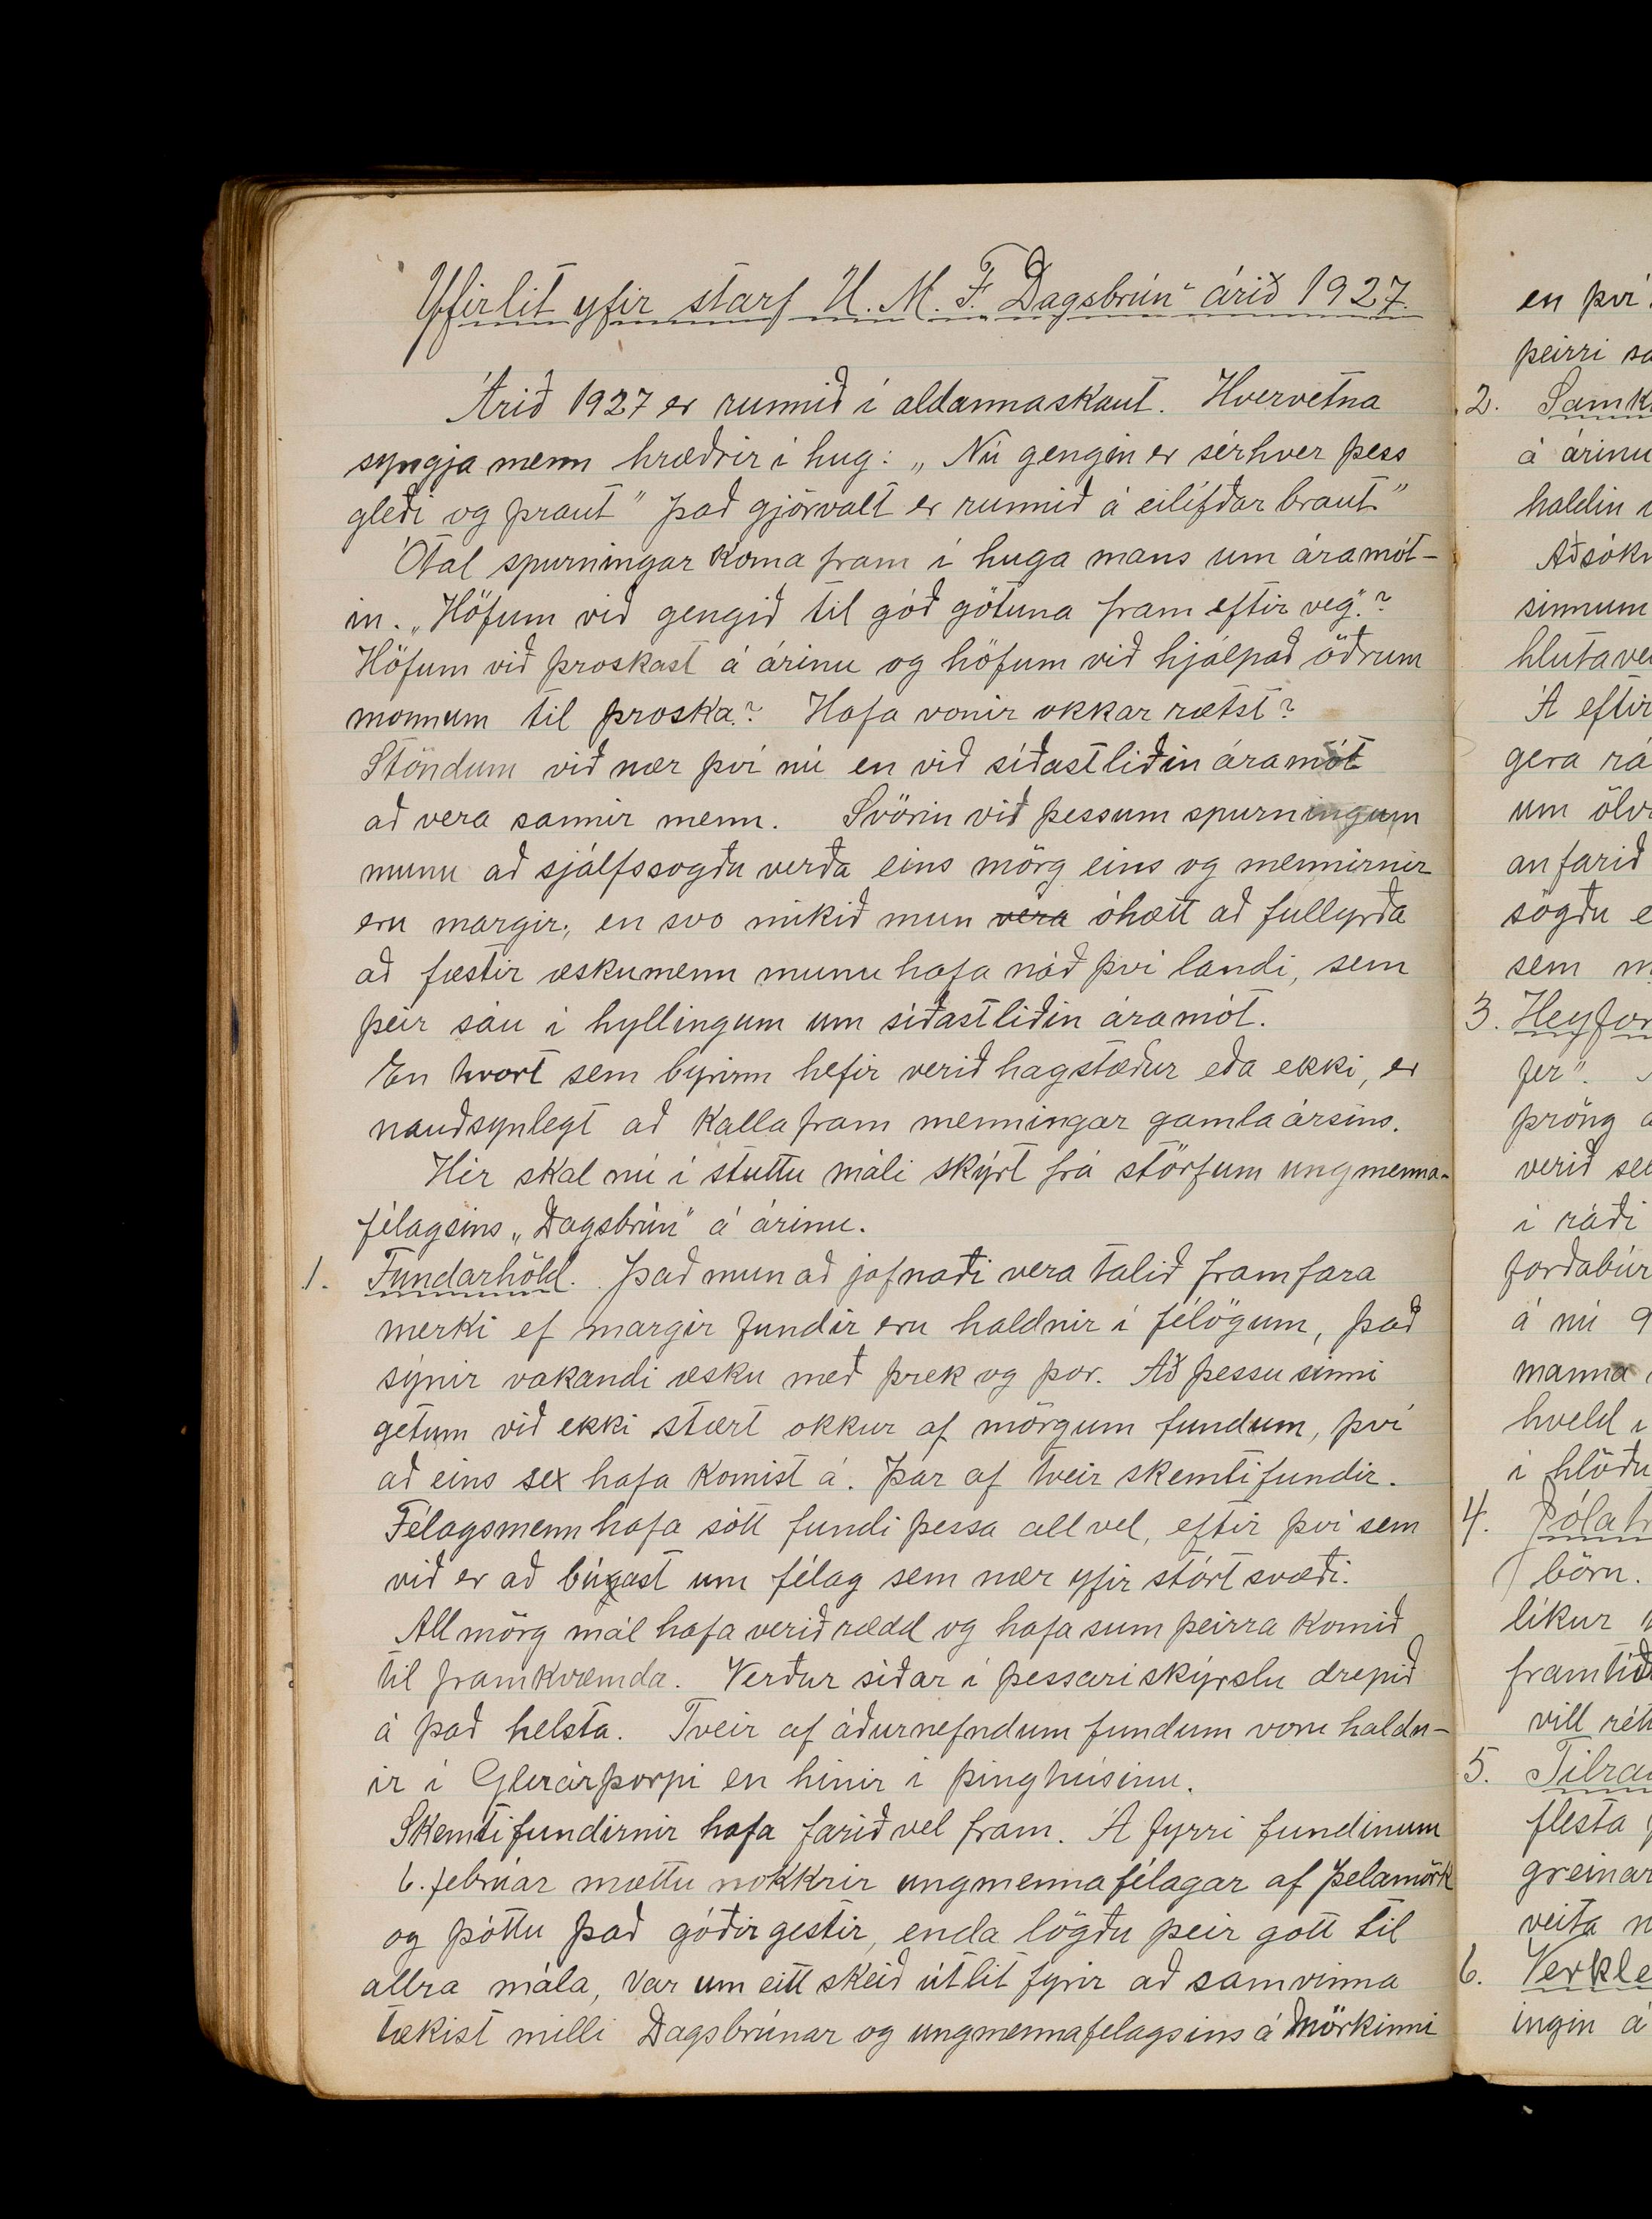 Yfirlit yfir starf U. M. F. Dagsbrún" árið 1927.
Árið 1927 er runnið í aldannaskaut. Hvervetna
syngja menn hrærðir í hug: „Nú gengin er sérhver þess
gleði og þraut" það gjörvalt er runnið á eilífðar braut"
Ótal spurningar koma fram í huga mans um áramót-
in. „Höfum við gengið til góð götuna fram eftir veg"?
Höfum við þroskast á árinu og höfum við hjálpað öðrum
monnum til þroska? Hafa vonir okkar rætst?
Stöndum við nær því nú en við síðastliðin áramót
að vera sannir menn. Svörin við þessum spurningum
munu að sjálfssogðu verða eins mörg eins og mennirnir
eru margir, en svo mikið mun vera óhætt að fullyrða
að fæstir æskumenn munu hafa náð því landi, sem
þeir sáu í hyllingum um síðastliðin áramót.
En hvort sem byrinn hefir verið hagstæður eða ekki, er
nauðsynlegt að kalla fram menningar gamla ársins.
Hér skal nú í stuttu máli skýrt frá störfum ungmenna-
félagsins „Dagsbrún" á árinu.
1. Fundarhöld. Það mun að jafnaði vera talið framfara
merki ef margir fundir eru haldnir í félögum, það
sýnir vakandi æsku með þrek og þor. Að þessu sinni
getum við ekki stært okkur af mörgum fundum, því
að eins sex hafa komist á. Þar af tveir skemtifundir.
Félagsmenn hafa sótt fundi þessa all vel, eftir því sem
við er að búast um félag sem nær yfir stórt svæði.
All mörg mál hafa verið rædd og hafa sum þeirra komið
til framkvæmda. Verður síðar í þessari skýrslu drepið
á það helsta. Tveir af áðurnefndum fundum voru haldn-
ir í Glerárþorpi en hinir í þinghúsinu.
Skemtifundirnir hafa farið vel fram. Á fyrri fundinum
6. febrúar mættu nokkrir ungmennafélagar af Þelamörk
og þóttu það góðir gestir, enda lögðu þeir gott til
allra mála, var um eitt skeið útlit fyrir að samvinna
tækist milli Dagsbrúnar og ungmennafelagsins á Mörkinni
en því
þeirri
2. Samk
á árinu
haldin
Aðsókn
sinnum
hlutave
Á eftir
gera rá
um ölv
an farið
sögðu e
sem m
3. Heyfor
fer".
þröng
verið
í ráði
forðabúr
á nú 9
manna
hveld
í hlöðu
4. Jólat
börn.
líkur
framtíð
vill rét
5. Tilrau
flesta
greinar
veita
6. Verkle
ingin á